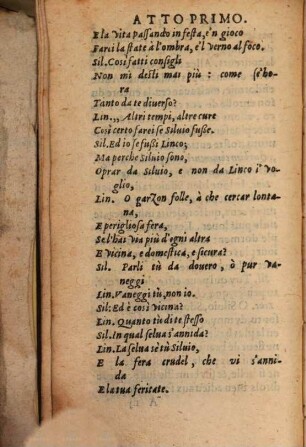 ATTO PRIMO.
E la vita passando in festa, e'n gioco
Farei la state à l'ombra, e'l verno al foco.
Sil. Così fatti consigli
Non mi desti mai più: come se'ho-
ra
Tanto da te diuerso?
Lin.,, Altri tempi, altre cure
Così certo farei se Siluio fusse.
Sil. Ed io se fussi Linco;
Ma perche Siluio sono,
Oprar da Siluio, e non da Linco i' vo-
glio,
Lin. O garzon folle, à che cercar lonta-
na,
E perigliosa fera,
Se l'hai via più d'ogni altra
E vicina, e domestica, e sicura?
Sil. Parli tù da douero, ò pur va-
neggi
Lin. Vaneggi tù, non io.
Sil: Ed è così vicina?
Lin. Quanto tù di te stesso
Sil. In qual selua s'annida?
Lin. La selua sè tù Siluio,
E la fera crudel, che vi s'anni-
da
E la tua feritate.